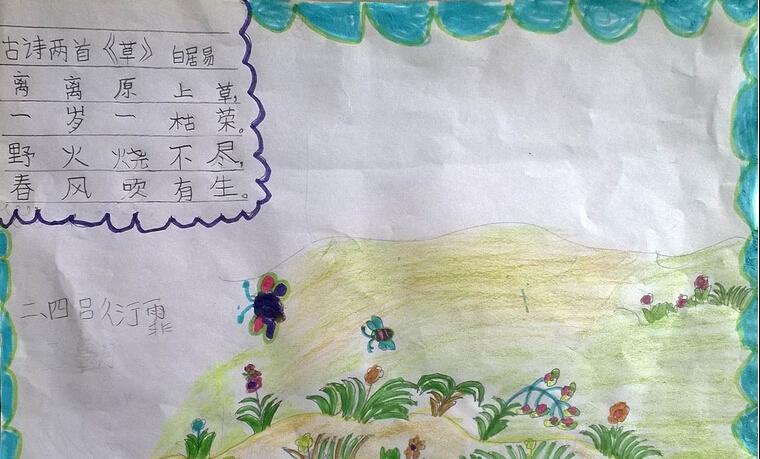 古诗两首《草》 白居易
离离原上草,
一岁一枯荣。
野火烧不尽,
春风吹有生。
二、四吕衍霏